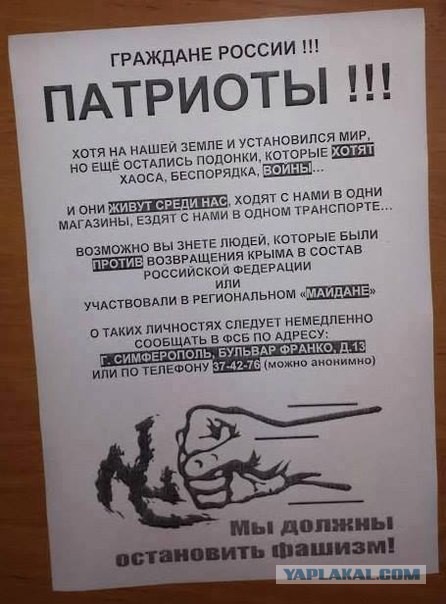 ГРАЖДАНЕ РОССИИ !!!
ПАТРИОТЫ !!!
ХОТЯ НА НАШЕЙ ЗЕМЛЕ И УСТАНОВИЛСЯ МИР,
НО ЕЩЁ ОСТАЛИСЬ ПОДОНКИ, КОТОРЫЕ ХОТЯТ
ХАОСА, БЕСПОРЯДКА, ВОЙНЫ...
И ОНИ ЖИВУТ СРЕДИ НАС, ХОДЯТ С НАМИ В ОДНИ
МАГАЗИНЫ, ЕЗДЯТ С НАМИ В ОДНОМ ТРАНСПОРТЕ...
ВОЗМОЖНО ВЫ ЗНЕТЕ ЛЮДЕЙ, КОТОРЫЕ БЫЛИ
ПРОТИВ ВОЗВРАЩЕНИЯ КРЫМА В СОСТАВ
РОССИЙСКОЙ ФЕДЕРАЦИИ
ИЛИ
УЧАСТВОВАЛИ В РЕГИОНАЛЬНОМ «МАЙДАНЕ»
О ТАКИХ ЛИЧНОСТЯХ СЛЕДУЕТ НЕМЕДЛЕННО
СООБЩАТЬ В ФСБ ПО АДРЕСУ:
Г. СИМФЕРОПОЛЬ, БУЛЬВАР ФРАНКО, Д.13
ИЛИ ПО ТЕЛЕФОНУ 37-42-76 (можно анонимно)
Мы должны
остановить фашизм!
YAPLAKAL.COM